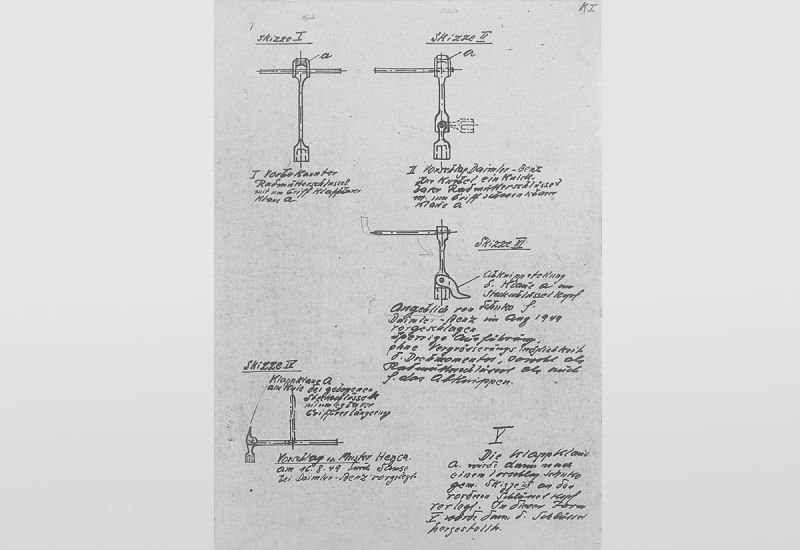 K I
Skizze I
a
Skizze II
a
I Vorbekannter
Radmutterschlüssel
mit um Griff klappbarer
Klaue a.
II Vorschlag Daimler-Benz
für Knebel ein knick-
barer Radmutterschlüssel
m. um Griff schwenkbarer
Klaue a
Skizze III
Abknippstellung
d. Klaue a um
Steckschlüssel Kopf
Angeblich von Schuko f.
Daimler-Benz im Aug 1949
vorgeschlagen
Sperrige Ausführung,
ohne Vergrösserungsmöglichkeit
d. Drehmomentes, sowohl als
Radmutterschlüssel als auch
f. das Abknippen.
Skizze IV
Klappklaue a
am Knie des gebogenen
Steckschlüssels
Griffverlängerung
Vorschlag u. Muster
am 16.8.49 durch
bei Daimler-Benz vorgelegt
V
Die Klappklaue
a. wurde dann nach
einem Vorschlag Schuko
gem. Skizze II an den
vorderen Schlüssel Kopf
verlegt. In dieser Form
V wurde dann d. Schlüssel
hergestellt.